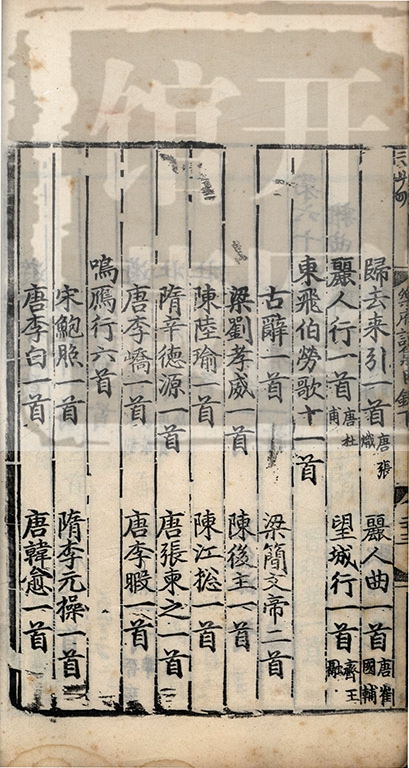 歸去来引一首 唐張熾 麗人曲一首 唐崔國輔
麗人行一首 唐杜甫 望城行一首 齊王融
東飛伯勞歌十一首
古辭一首 梁簡文帝二首
梁劉孝威一首 陳後主一首
陳陸瑜一首 陳江揔一首
隋辛德源一首 唐張柬之一首
唐李嶠一首 唐李暇一首
鳴鴈行六首
宋鮑照一首 隋李元操一首
唐李白一首 唐韓愈一首